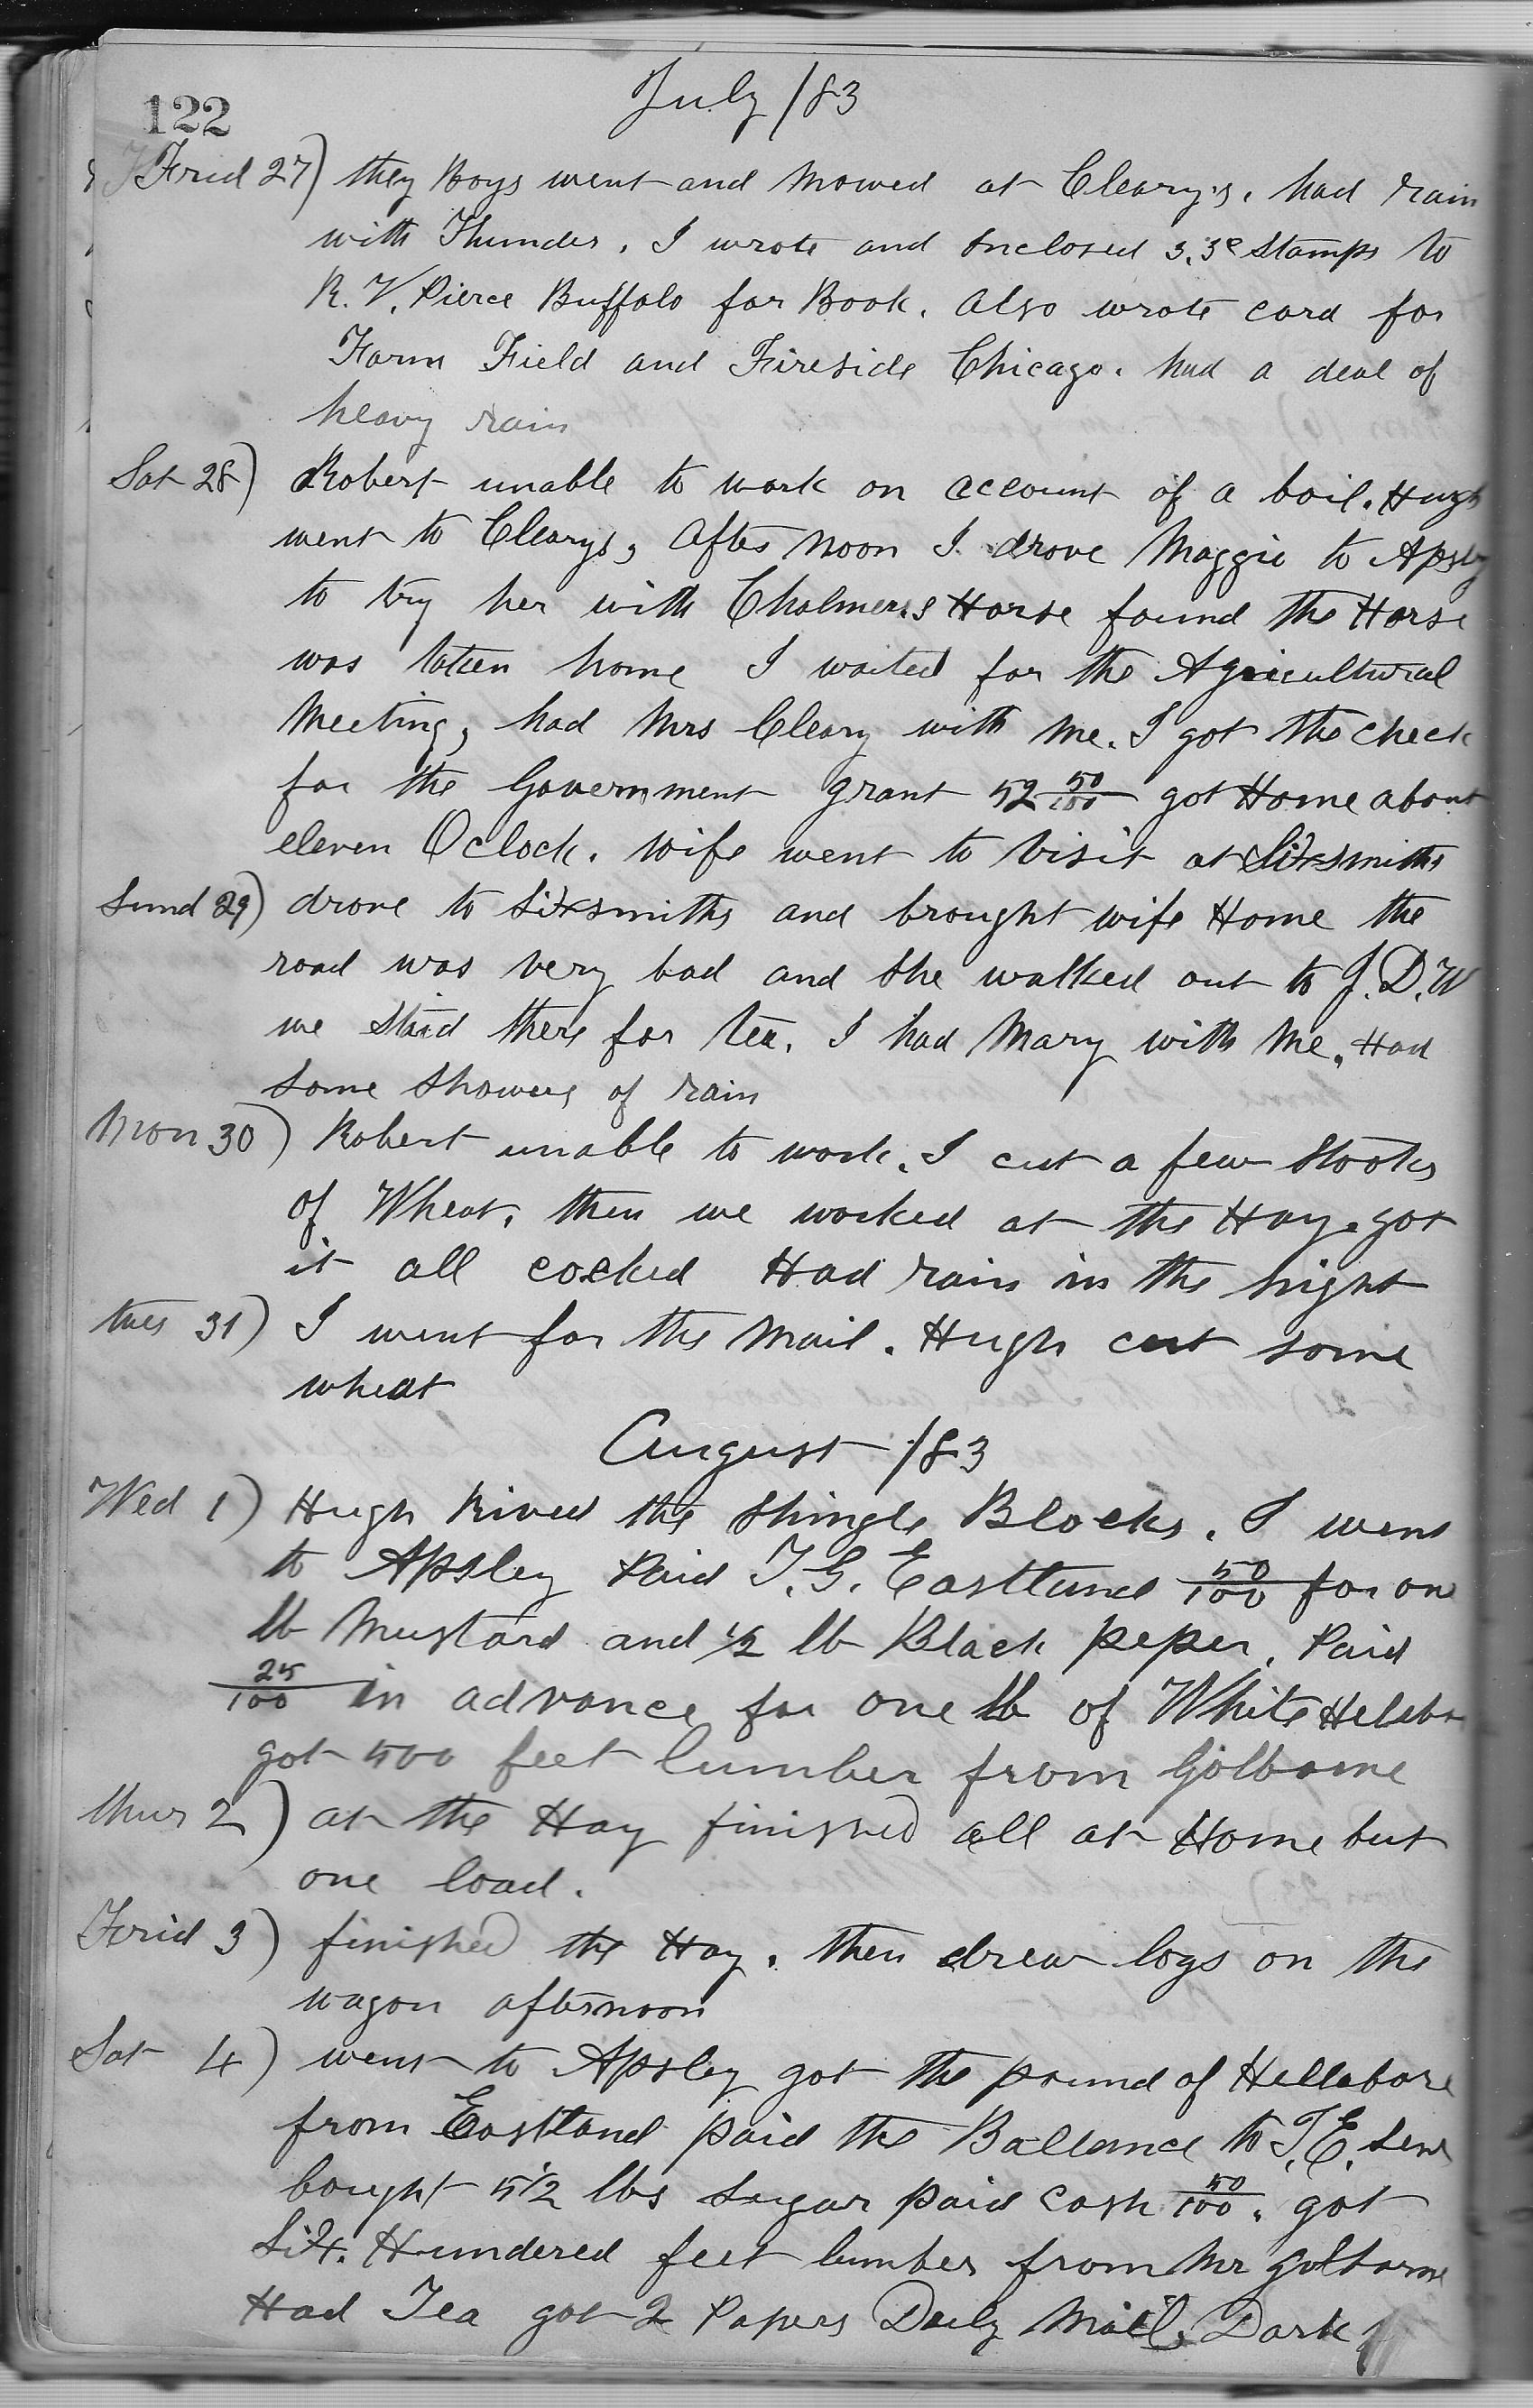 122
July /83
Frid 27) they Boys went and mowed at Cleary's. had rain
with Thunder. I wrote and Enclosed 3.3c Stamps to
R. V. Pierce Buffalo for Book. Also wrote card for
Farm Field and Fireside Chicago. had a deal of
heavy rain
Sat 28) Robert unable to work on account of a boil. Hugh
went to Clearys, After noon I drove Maggie to Apsley
to try her with Chalmers Horse found the Horse
was taken home I waited for the Agricultural
Meeting, had Mrs Cleary with me. I got the check
for the Government grant 52 50/100 got Home about
eleven Oclock. wife went to visit at Sixsmiths
Sund 29) drove to Sixsmiths and brought wife Home the
road was very bad and she walked out to J. D. W
we staid there for tea. I had Mary with me. Had
some showers of rain
Mon 30) Robert unable to work. I cut a few Stooks
of Wheat. then we worked at the Hay. got
it all cocked Had rain in the night
tues 31) I went for the mail. Hugh cut some
wheat
August /83
Wed 1) Hugh Rived the Shingle Blocks. I went
to Apsley Paid T. G. Eastland 50/100 for one
lb Mustard and 1/2 lb Black peper. Paid
25/100 in advance for one lb of White Helebor
got 500 feet lumber from Golborne
thur 2) at the Hay finished all at Home but
one load.
Frid 3) finished the Hay. then drew logs on the
wagon afternoon
Sat 4) went to Apsley got the pound of Hellebore
from Eastland paid the Ballance to T. E. Senr
bought 5 1/2 lbs Sugar paid cash 50/100. got
Six. Hundered feet lumber from Mr Golborne
Had Tea got 2 Papers Daily Mail. Dark